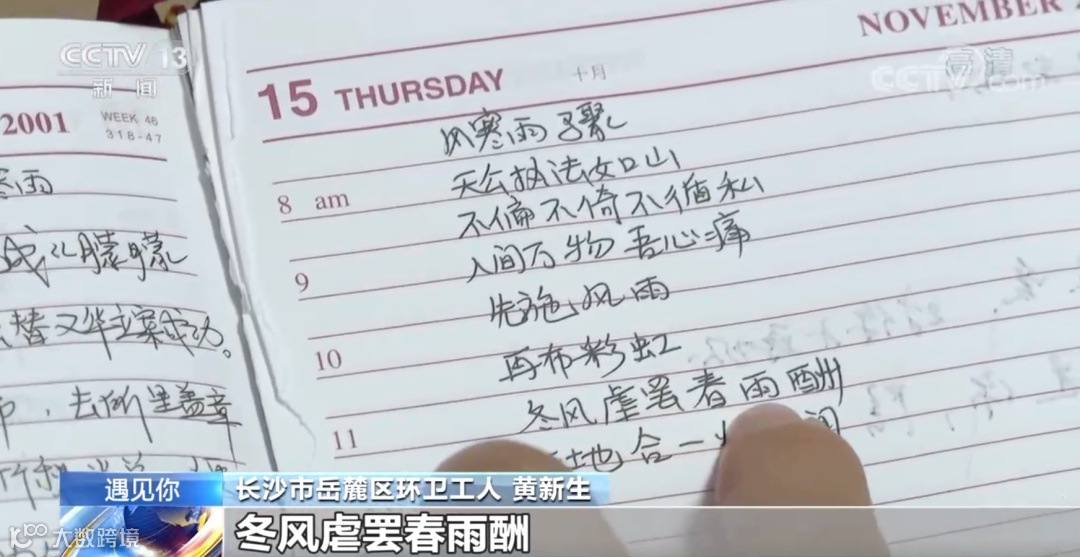 CCTV 13
新闻
高清
CCTV.com
NOVEMBER
2001
WEEK 46
318-47
15 THURSDAY
十月
风寒雨了聚
8 am
天公执法如山
不偏不倚不循私
9
人间万物吾心痛
先施风雨
10
再布彩虹
冬风虐罢春雨酬
11
地合一
寒雨
成化朦朦
去所里盖章
遇见你
长沙市岳麓区环卫工人 黄新生
冬风虐罢春雨酬
大数跨境